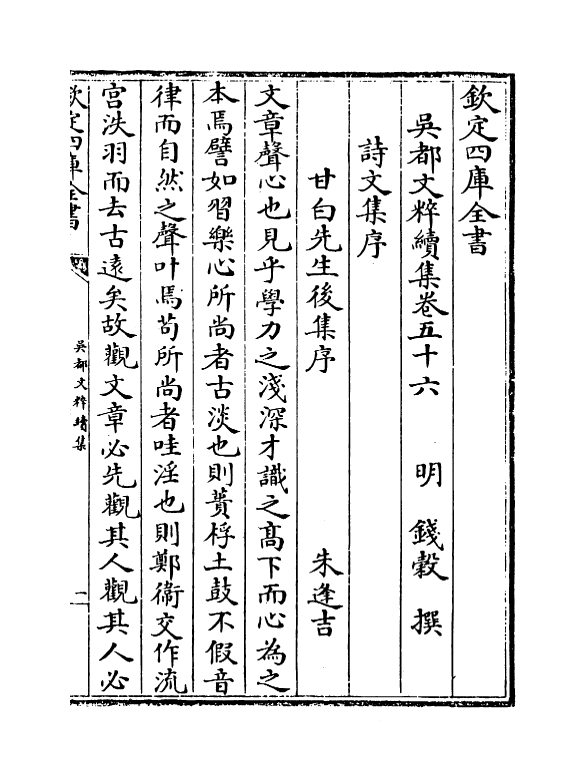 欽定四庫全書
吳都文粹續集卷五十六　明　錢榖　撰
詩文集序
甘白先生後集序　朱逢吉
文章聲心也見乎學力之淺深才識之髙下而心為之
本焉譬如習樂心所尚者古淡也則蕢桴土鼓不假音
律而自然之聲叶焉苟所尚者哇淫也則鄭衞交作流
宮泆羽而去古遠矣故觀文章必先觀其人觀其人必
欽定四庫全書
吳都文粹續集
二